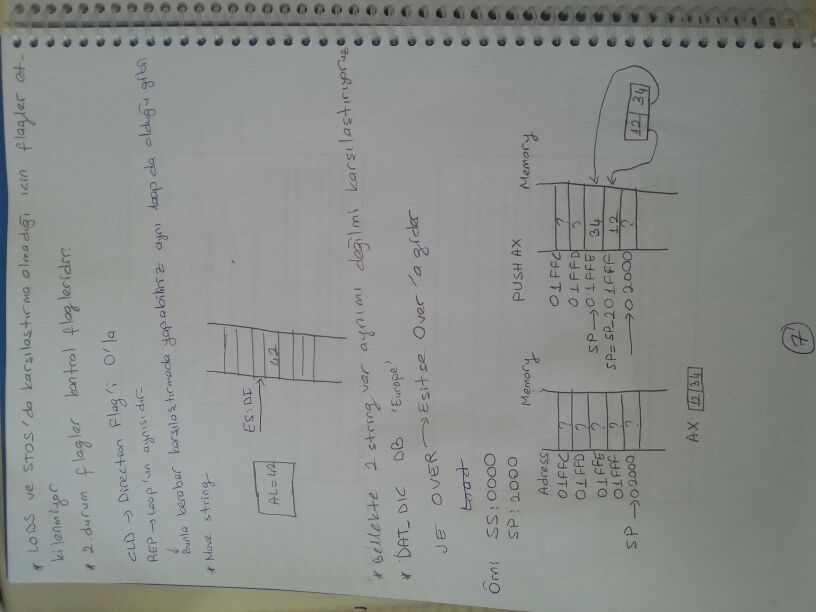 * LODS ve STOS'da karsılastırma olmadığı icin flagler et-
kilenmiyor.
* 2. durum flagler kontrol flagleridir.
CLD → Direction Flag'i 0'la
REP → Loop'un aynısıdır.
↓
Bunla beraber karsılastırmada yapabiliriz aynı loop da olduğu gibi
* Move string
AL=42
ES:DI
42
* Bellekte 2 string var aynımı değilmi karsılastırıyoruz
* DAT_DIC DB 'Europe'
JE OVER → Esitse Over'a gider
Load
Örn: SS:0000
SP:2000
Adress Memory
01FFC ?
01FFD ?
01FFE ?
01FFF ?
SP → 02000 ?
AX 12 34
PUSH AX Memory
01FFC ?
01FFD ?
SP → 01FFE 34
SP=SP-2 01FFF 12
→ 02000 ?
12 34
7